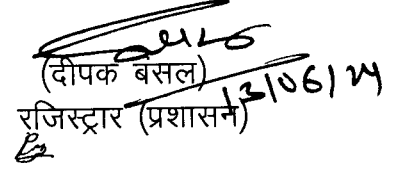 (दीपक बंसल)
रजिस्ट्रार (प्रशासन)
13/06/24